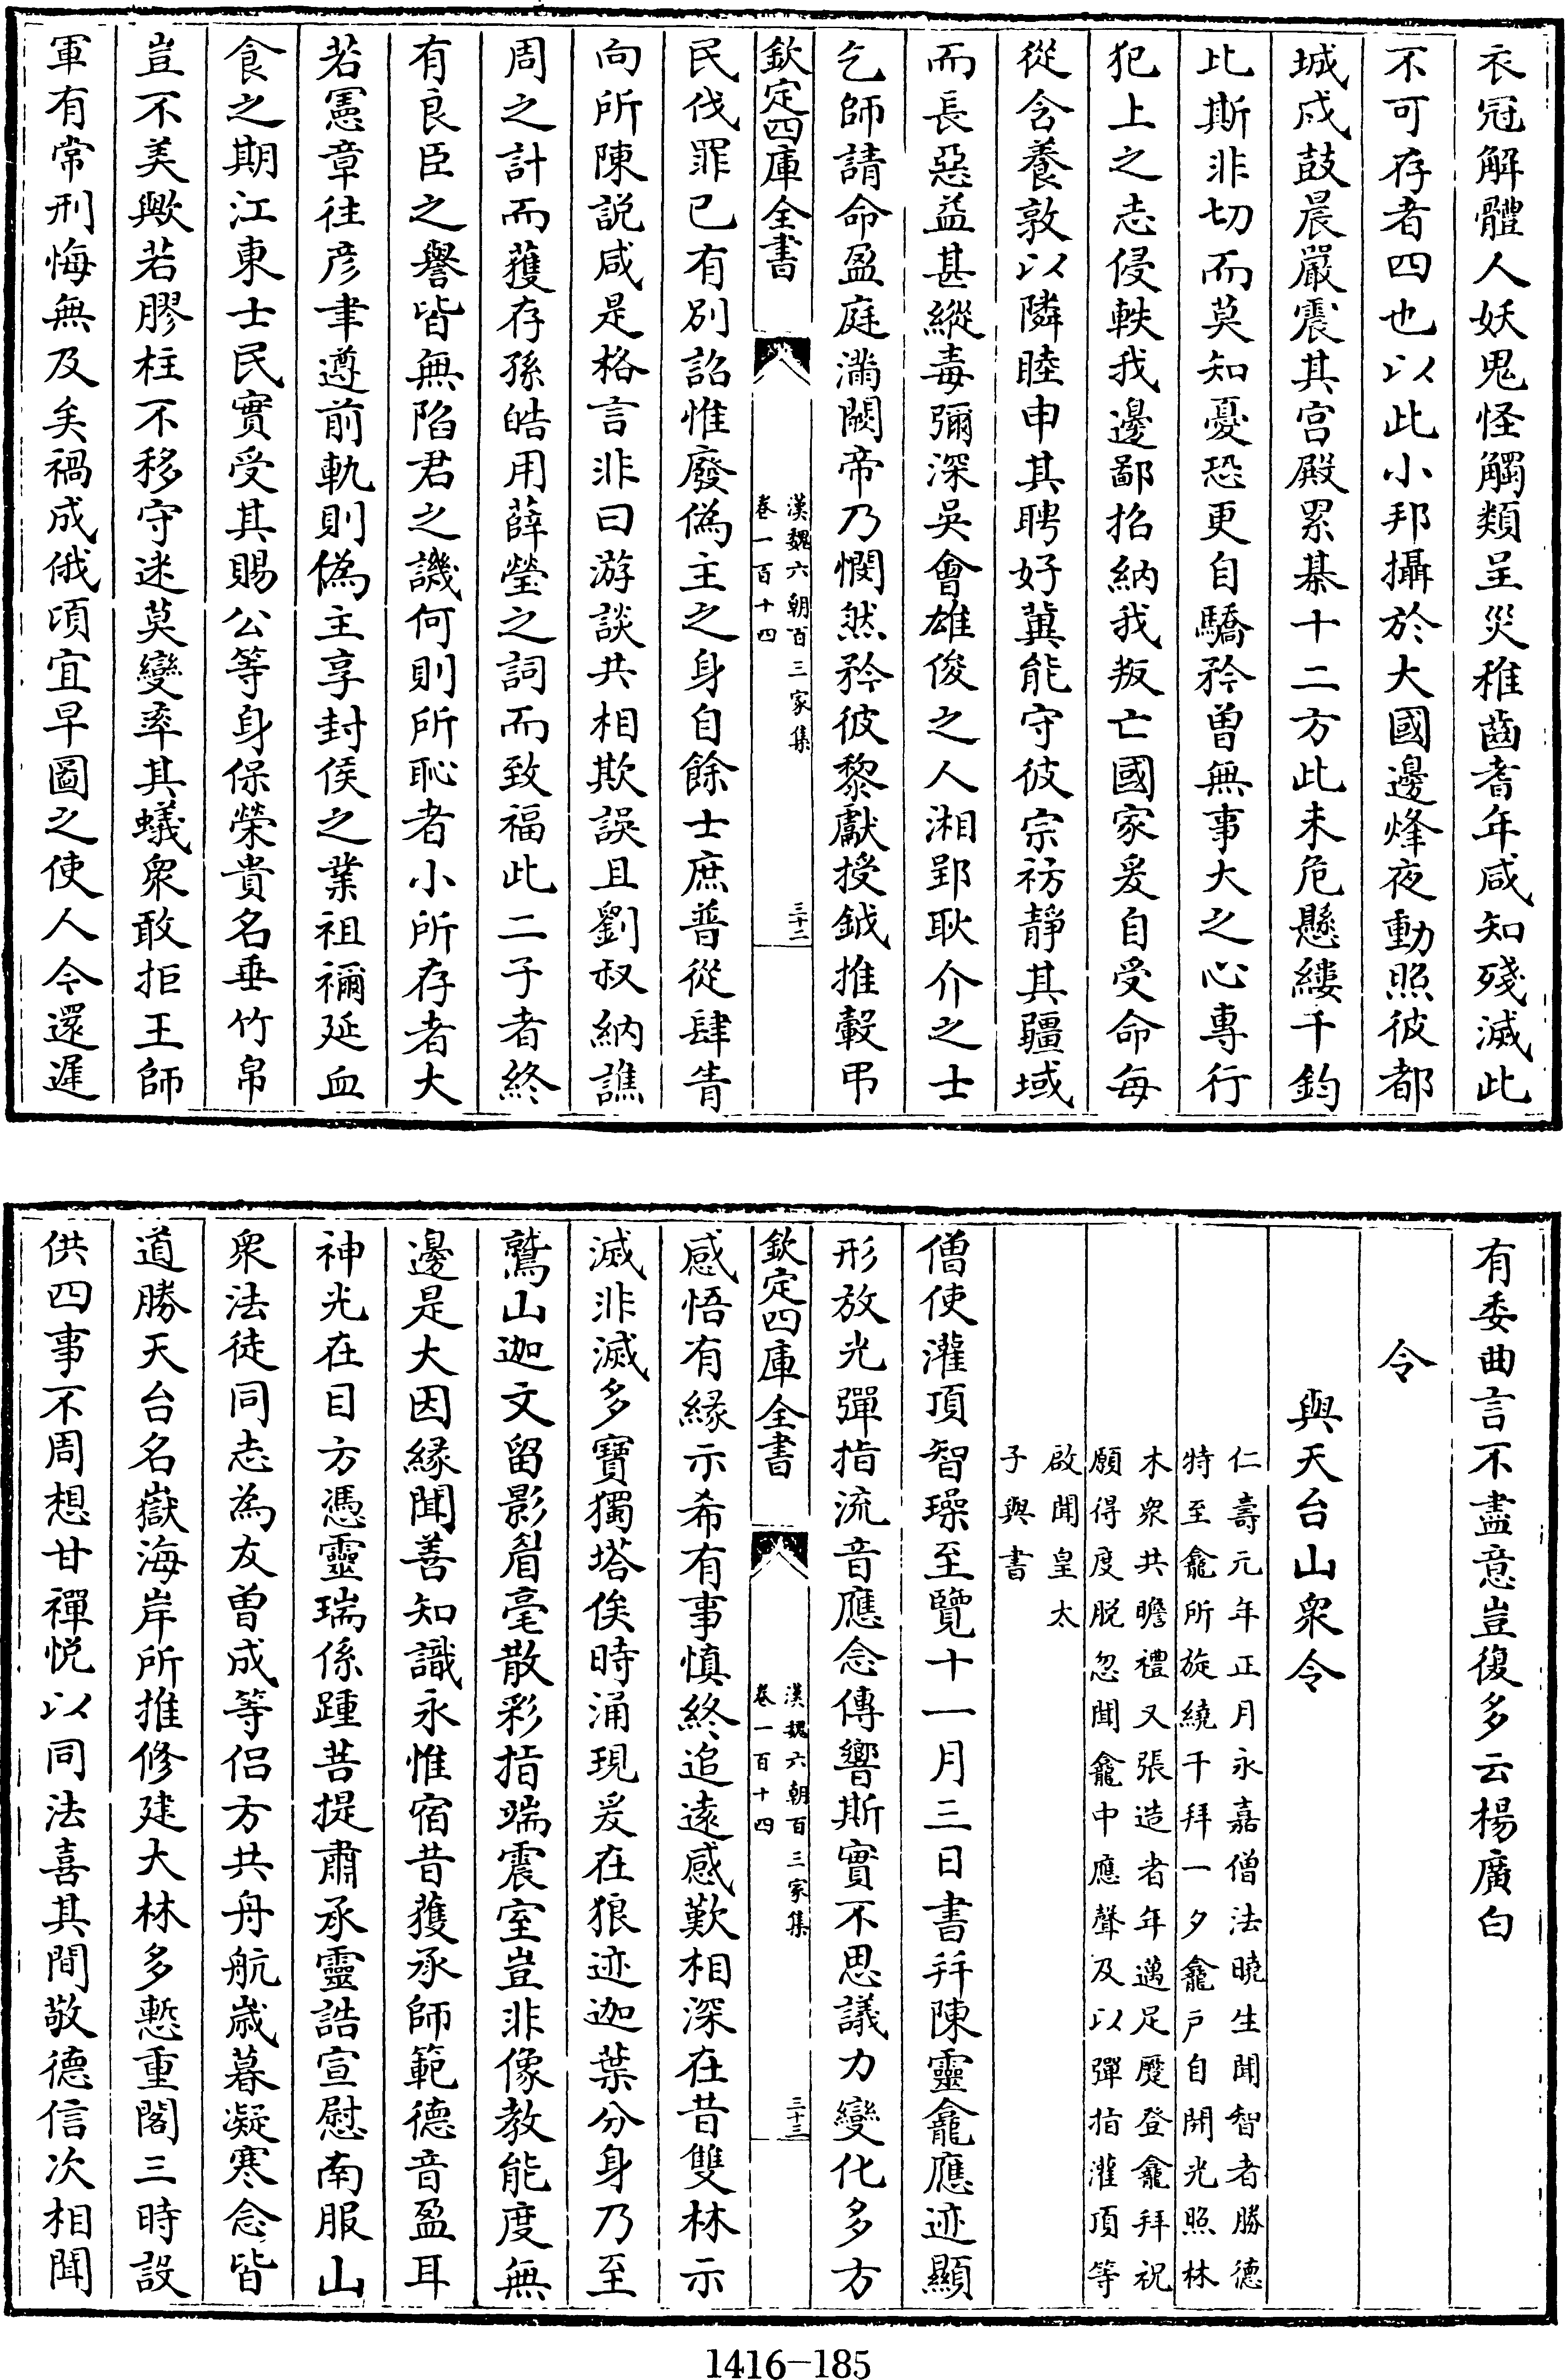 衣冠解體人妖鬼怪觸類呈災稚齒耆年咸知殘滅此
不可存者四也以此小邦攝於大國邊烽夜動照彼都
城戍鼓晨嚴震其宫殿累棊十二方此未危懸縷千鈞
比斯非切而莫知憂恐更自驕矜曽無事大之心專行
犯上之志侵軼我邊鄙招納我叛亡國家爰自受命每
從含養敦以隣睦申其聘好冀能守彼宗祊靜其疆域
而長惡益甚縱毒彌深吳會雄俊之人湘郢耿介之士
乞師請命盈庭滿闕帝乃憫然矜彼黎獻授鉞推轂弔
欽定四庫全書
漢魏六朝百三家集
卷一百十四
三十二
民伐罪已有別詔惟廢偽主之身自餘士庶普從肆眚
向所陳説咸是格言非曰游談共相欺誤且劉叔納譙
周之計而獲存孫皓用薛瑩之詞而致福此二子者終
有良臣之譽皆無陷君之譏何則所恥者小所存者大
若憲章往彦聿遵前軌則偽主享封侯之業祖禰延血
食之期江東士民實受其賜公等身保榮貴名垂竹帛
豈不美歟若膠柱不移守迷莫變率其蟻衆敢拒王師
軍有常刑悔無及矣禍成俄頃宜早圖之使人今還遲
有委曲言不盡意豈復多云楊廣白
令
與天台山衆令
仁壽元年正月永嘉僧法曉生聞智者勝德
特至龕所旋繞千拜一夕龕戶自開光照林
木衆共瞻禮又張造者年邁足蹙登龕拜祝
願得度脱忽聞龕中應聲及以彈指灌頂等
啟聞皇太
子與書
僧使灌頂智璪至覽十一月三日書拜陳靈龕應迹顯
形放光彈指流音應念傳響斯實不思議力變化多方
欽定四庫全書
漢魏六朝百三家集
卷一百十四
三十三
感悟有緣示希有事慎終追遠感歎相深在昔雙林示
滅非滅多寶獨塔俟時涌現爰在狼迹迦葉分身乃至
鷲山迦文留影眉毫散彩指端震室豈非像教能度無
邊是大因緣聞善知識永惟宿昔獲承師範德音盈耳
神光在目方憑靈瑞係踵菩提肅承靈誥宣慰南服山
衆法徒同志為友曽成等侣方共舟航嵗暮凝寒念皆
道勝天台名嶽海岸所推修建大林多慙重閣三時設
供四事不周想甘禪悦以同法喜其間敬德信次相聞
1416-185